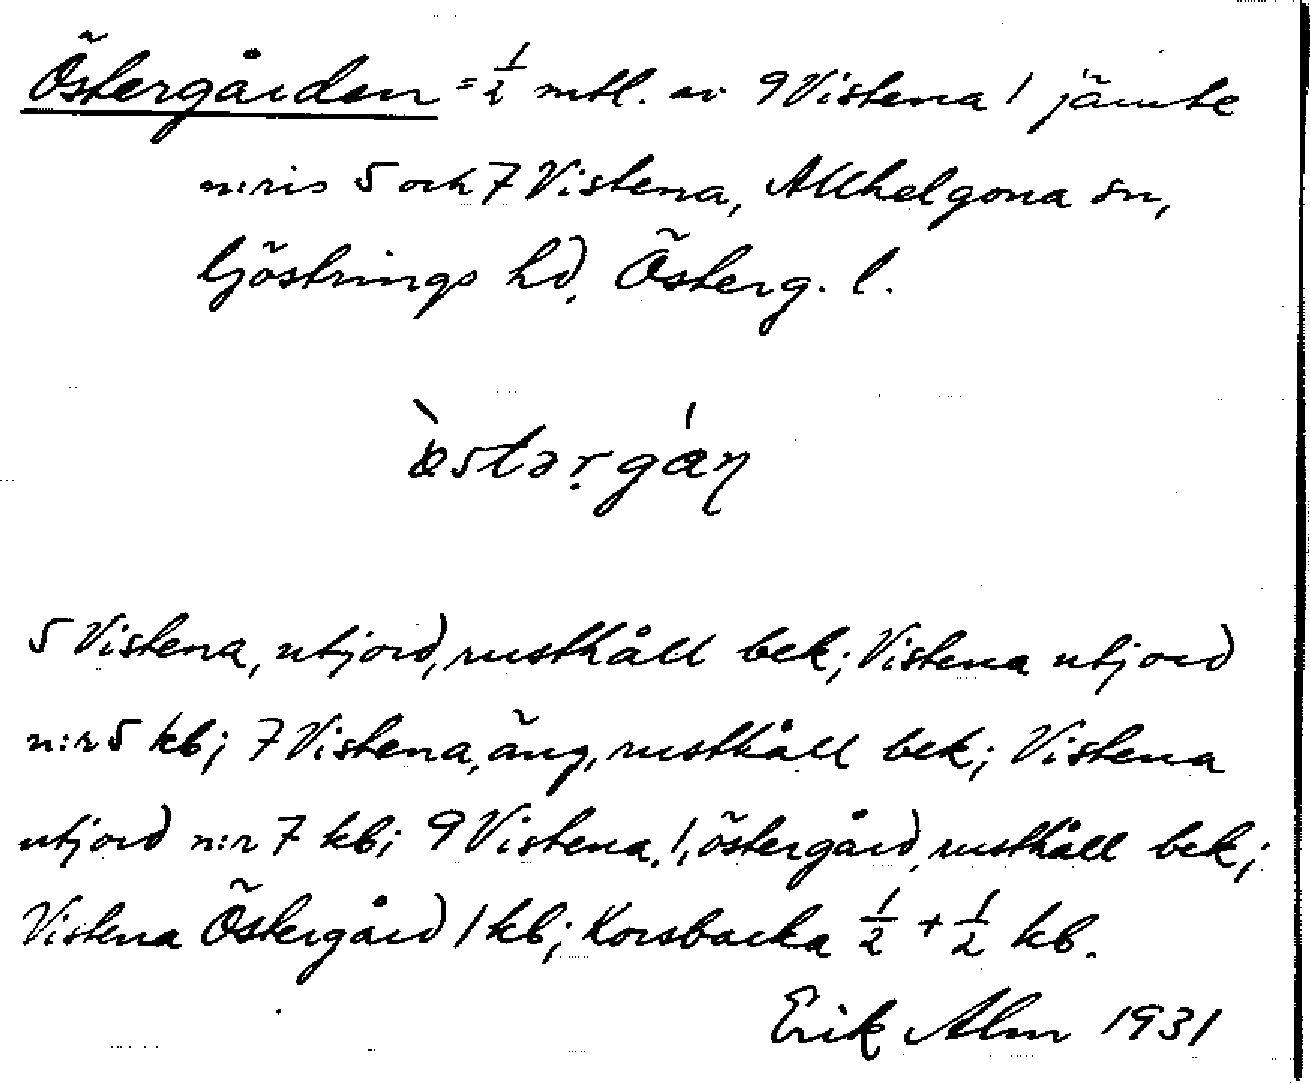 Östergården = 1/2 mtl. av 9 Vistena 1 jämte
n:ris 5 och 7 Vistena, Allhelgona sn,
Göstrings hd, Österg. l.
ö̀stərgáɳ
5 Vistena, utjord, rusthåll bek; Vistena utjord
n:r 5 kb; 7 Vistena, äng, rusthåll bek; Vistena
utjord n:r 7 kb; 9 Vistena, 1, östergård, rusthåll bek;
Vistena Östergård 1 kb; Korsbacka 1/2 + 1/2 kb.
Erik Alm 1931